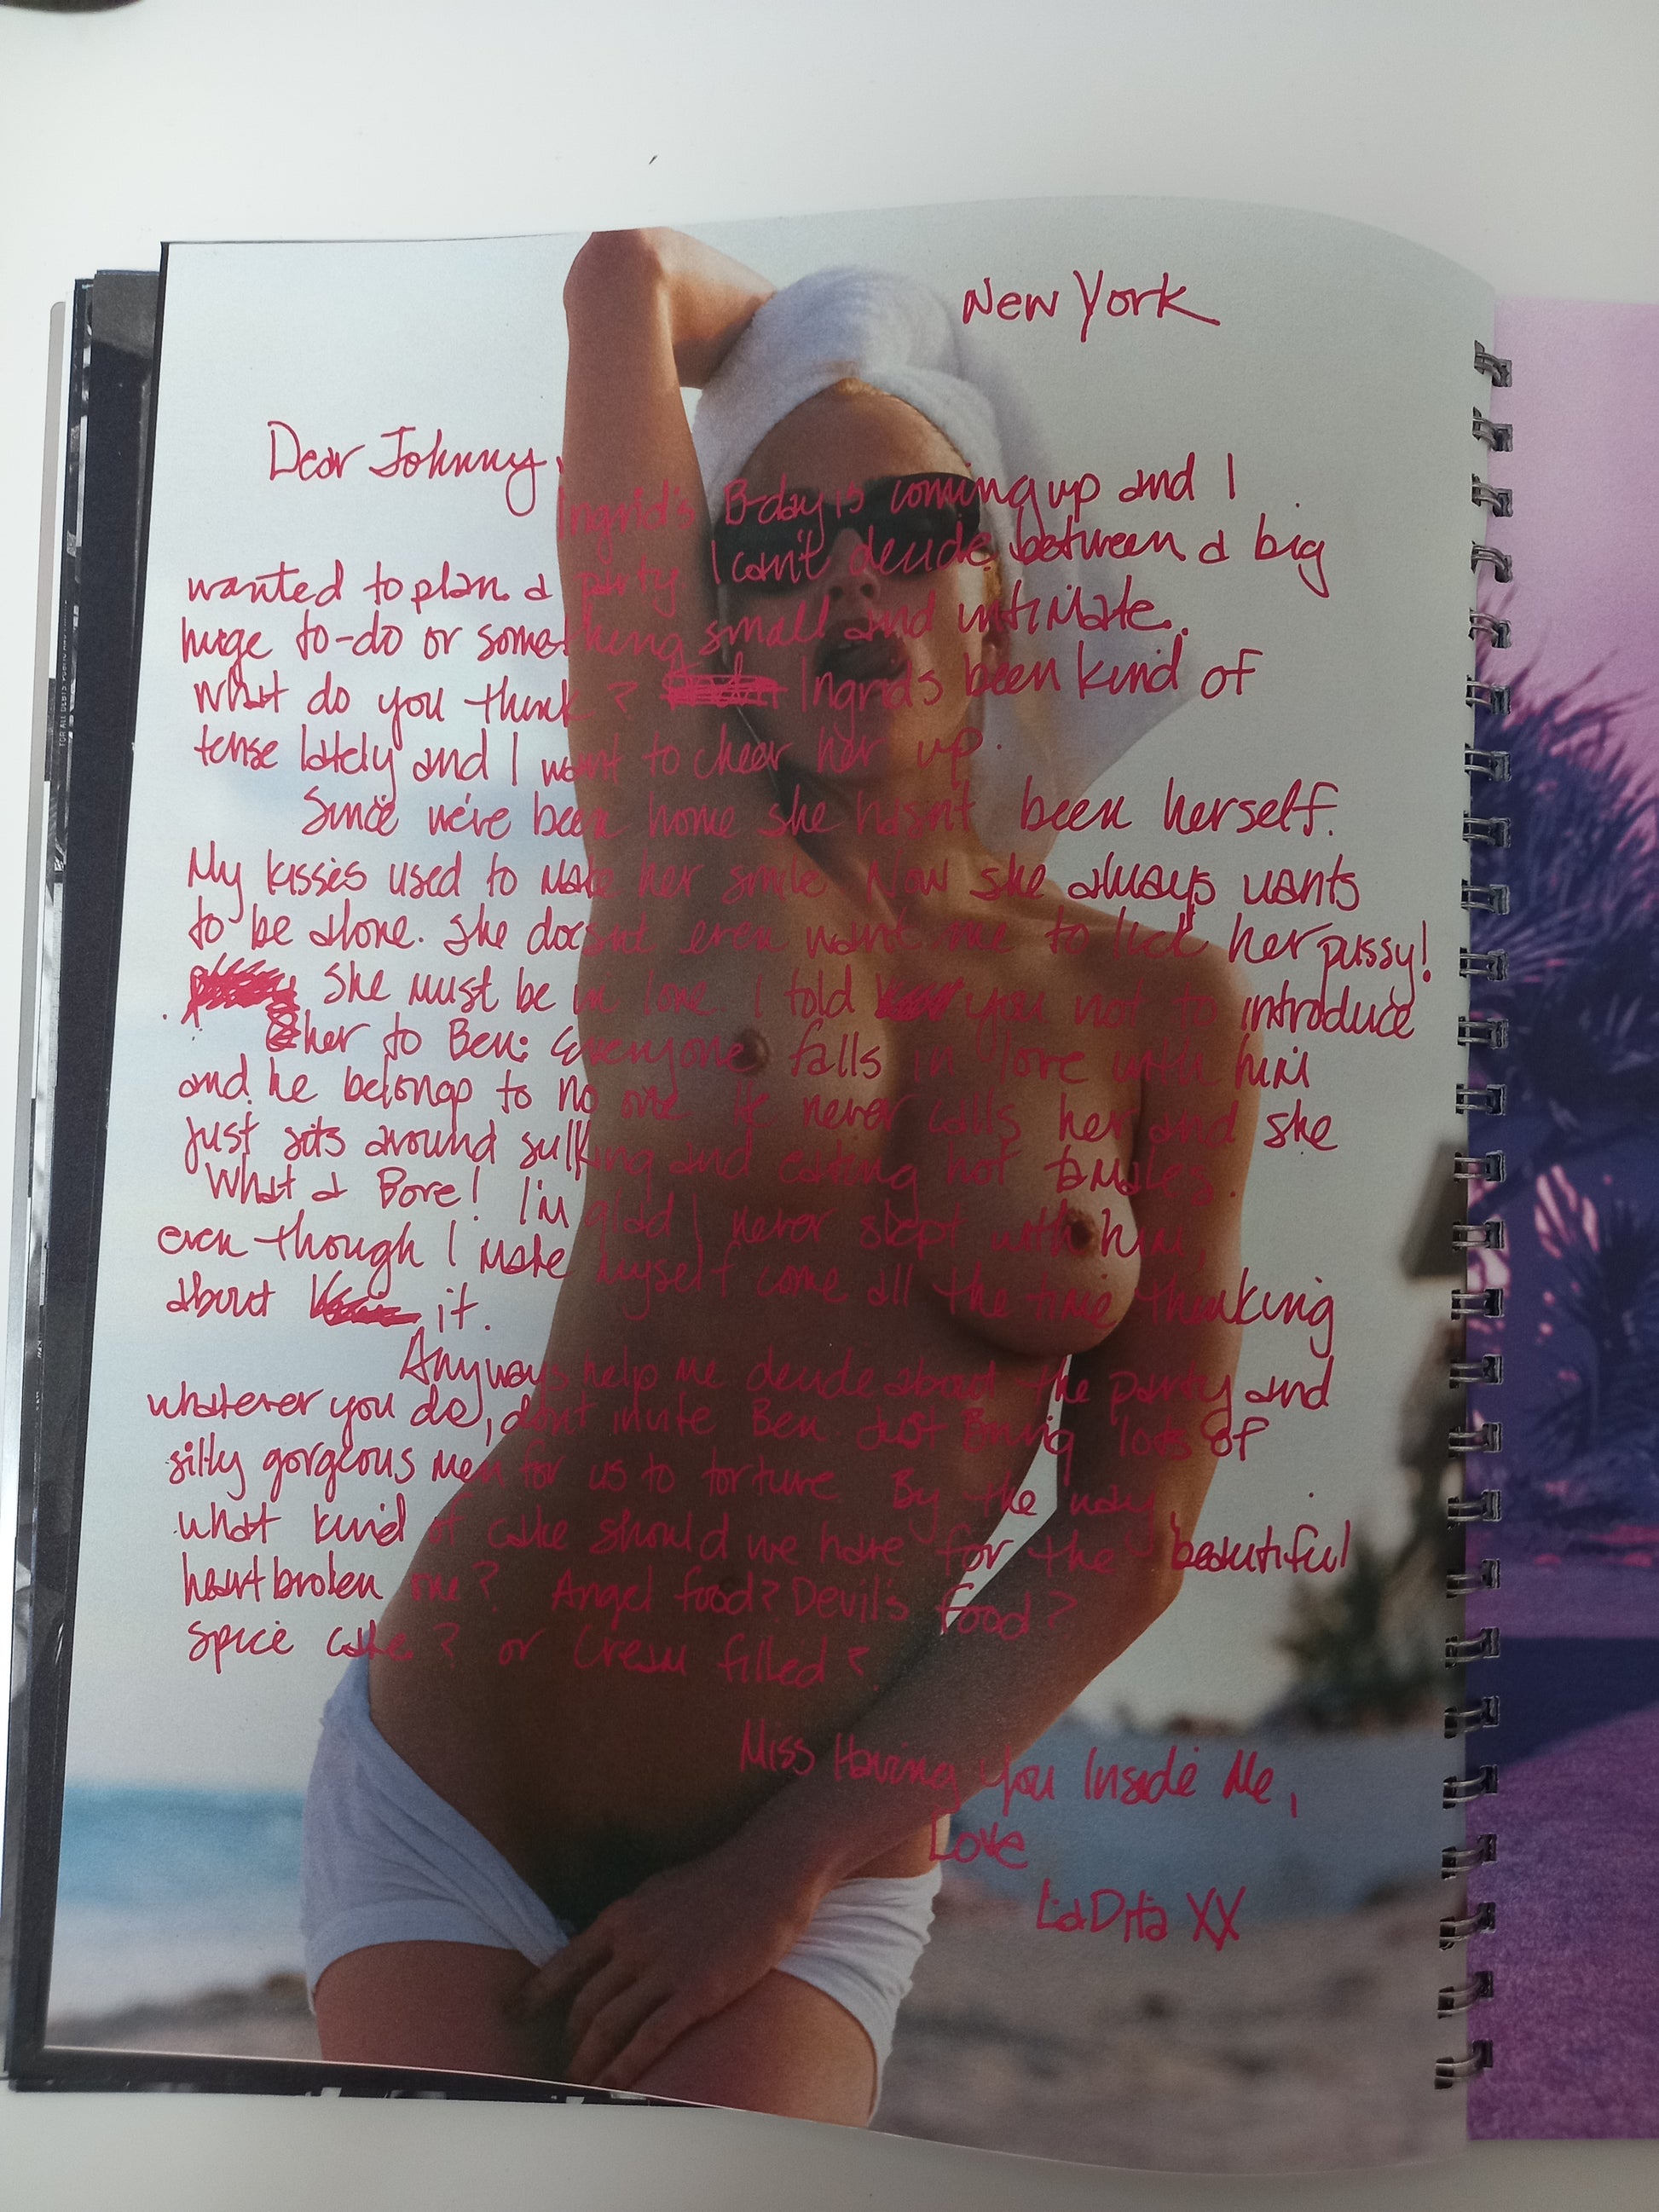 New York
Dear Johnny,
Ingrid's B-day is coming up and I
wanted to plan a party. I can't decide between a big
huge to-do or something small and intimate.
What do you think? Ingrid's been kind of
tense lately and I want to cheer her up.
Since we've been home she hasn't been herself.
My kisses used to make her smile. Now she always wants
to be alone. She doesn't even want me to lick her pussy!
She must be in love. I told you not to introduce
her to Ben: Everyone falls in love with him
and he belongs to no one. He never calls her and she
just sits around sulking and eating hot tamales.
What a Bore! I'm glad I never slept with him,
even though I make myself come all the time thinking
about it.
Anyways help me decide about the party and
whatever you do, don't invite Ben. Just Bring lots of
silly gorgeous men for us to torture. By the way,
what kind of cake should we have for the beautiful
heartbroken one? Angel food? Devil's food?
Spice cake? or Cream filled?
Miss Having You Inside Me,
Love
LaDita XX